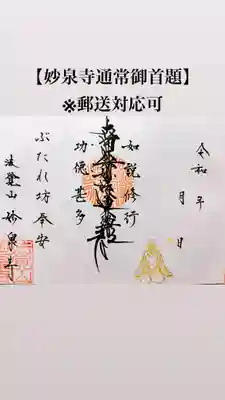 【妙泉寺通常御首題】
※郵送対応可
令和 年 月 日
如説修行
南無妙法蓮華経
功徳甚多
ぶたれ坊奉安
妙泉寺